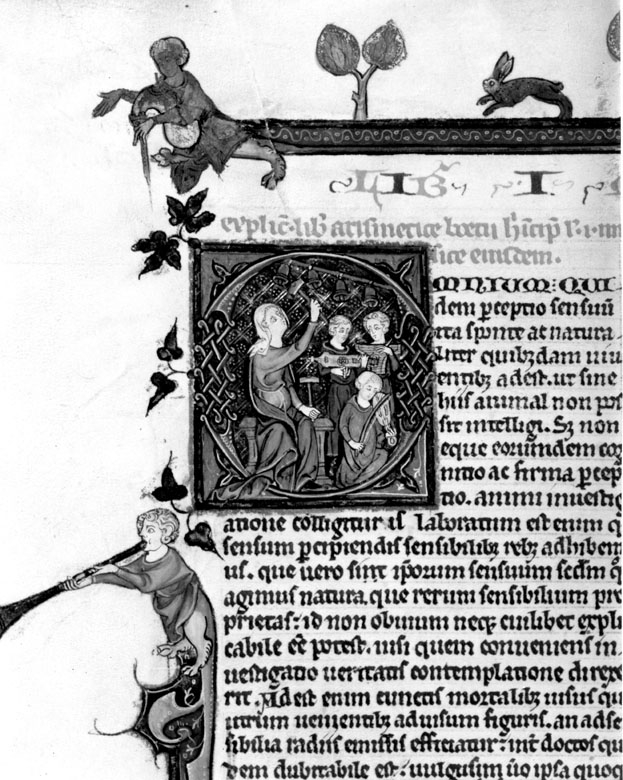 LIB I
explic lib arismetice boetii incip
sice eiusdem.
MNIUM QUI
dem perceptio sensuū
ita sponte ac natura
liter quibȝdam uiu
entibȝ adest. ut sine
hiis animal non pos
sit intelligi. Sȝ non
eque eorumdem cog
nitio ac firma percep
tio. animi inuestig
atione colligitur is laboratum est enim q
sensum ꝑcipiendis sensibilibȝ rebȝ adhibem
us. que uero sint ip̄orum sensuum sedm̄ q̄
agimus natura. que rerum sensibilium pro
prietas: id non obuium necȝ cuilibet expli
cabile ēē potest. nisi quem conueniens in
uestigatio ueritatis contemplatione direxe
rit. Adest enim cunctis mortalibȝ uisus qui
utrum uenientibȝ aduisum figuris. an adse
sibilia radiis emissis efficiatur: int̄ doctos qui
dem dubitabile est: uulgusm̄ ūo ipsa quoq